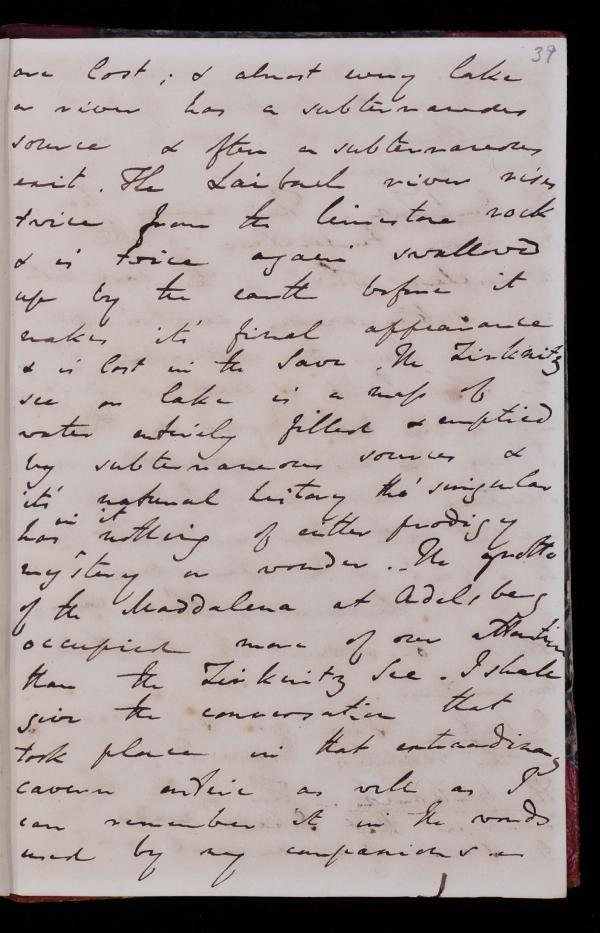 39
are lost; & almost every lake
or river has a subterraneous
source & often a subterraneous
exit. The Laibach river rises
twice from the limestone rock
& is twice again swallowed
up by the earth before it
makes it's final appearance
& is lost in the Save. The Zirknitz
see or lake is a mass of
water entirely filled & emptied
by subterraneous sources &
it's natural history tho' singular
in it
has nothing of either prodigy
mystery or wonder. The grotto
of the Maddalena at Adelsberg
occupied more of our attention
than the Zirknitz See. I shall
give the conversation that
took place in that extraordinary
cavern entire as well as I
can remember it in the words
used by my companions.